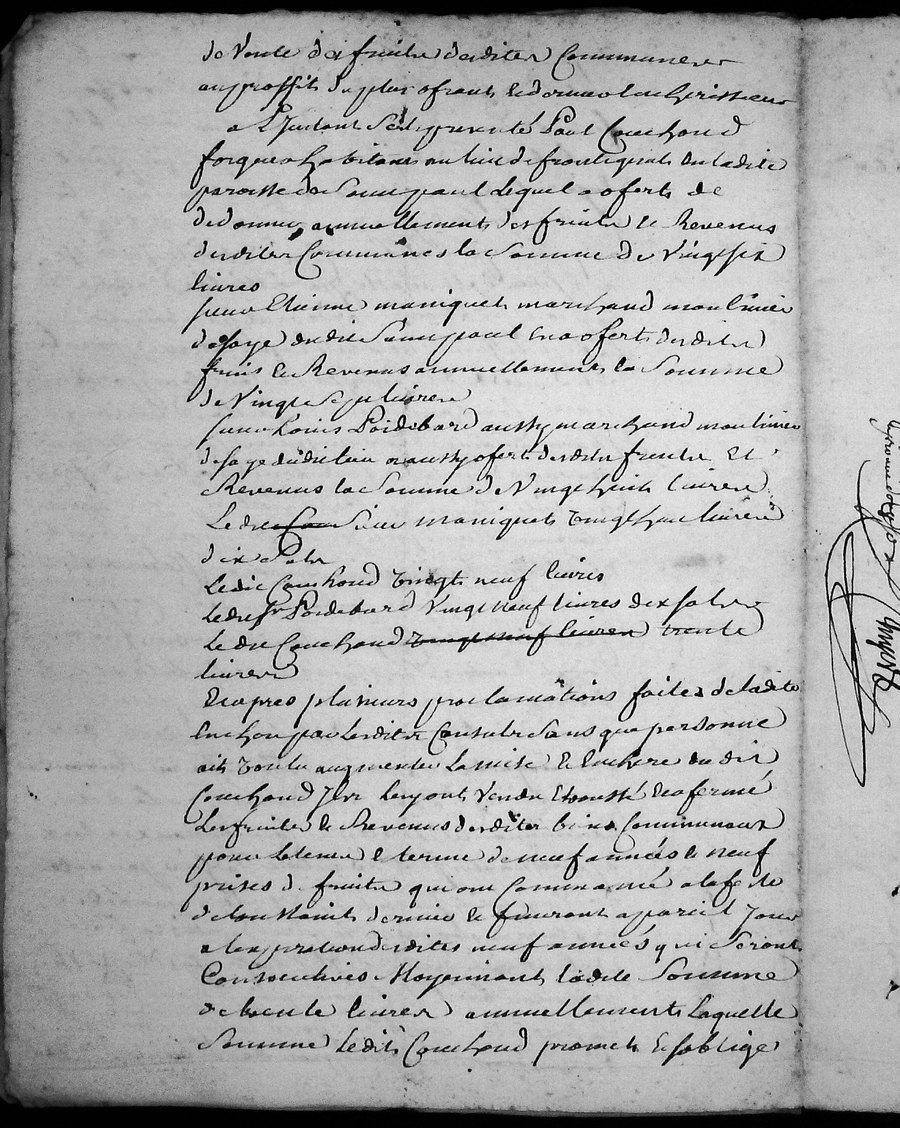 de vente des fruits desdites Communes
au proffits du plus ofrants & dernier encherisseur
a L'Instant s'est presenté Paul Couchoud
forgeur habitans au lieu de frontignat en ladite
paroisse de Saint paul lequel a oferts de
de donner annuellements des fruits & Revenus
desdites Communes la Somme de Vingt six
livres
sieur Etienne maniquet marchand moulinier
de soye dudit Saint paul en a oferts desdits
fruis & Revenus annuellements la Somme
de Vingt sept livres
sieur Louis Poidebard aussy marchand moulinier
de soye dudit lieu a aussy oferts desdits fruits Et
Revenus la Somme de Vingt huit livres
Ledit Sieur maniquet vingt huit livres
dix Sols
Ledit Couchoud vingt neuf livres
Ledit sr Poidebard Vingt neuf livres dix sols
Ledit Couchoud vingt neuf livres trente
livres
Et apres plusieurs proclamations faites de ladite
Enchere par lesdits Consuls Sans que personne
aits voulu augmenter La mise & Enchere du dit
Couchoud Ils Luy onts Vendu Et afermé
Les fruits & Revenus desdites biens Communaux
pour Le tems & terme de neuf années & neuf
prises de fruits qui ont Commancé a la fete
de tous Saints dernier & finironts a pareil Jour
a lexpiration desdites neuf années qui Seronts
Consecutives Moyennant ladite Somme
de trente livres annuellements Laquelle
Somme Ledits Couchoud promets & soblige